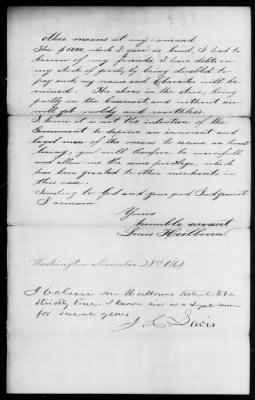 other means at my command
The $3000, which I gave as bond, I had to
borrow of my friends, I have debts on
my stock of goods, by being disabled to
pay such my name and Character will be
ruined. The shoes in the store, being
partly in the basement, and without air
will get mouldy and worthless.
I know it is not the intention of the
Government to deprive an innocent and
loyal man of the means to secure an honest
living, you will therefore be mercifull
and allow me the same privilege, which
has been granted to other merchants in
this case.
Trusting to God and your good Judgement
I remain
Yours
humble servant
Louis Heilbrun
Washington November 28th 1864
I believe Mr Heilbruns statement to be
strictly true. I known him as a loyal man
for several years
J. C. Lewis